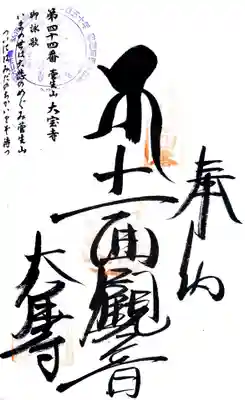 奉納
十一面觀音
大寶寺
第四十四番 菅生山 大宝寺
御詠歌
いまの世は大悲のめぐみ菅生山
ついにはみだのちかいをぞ待つ